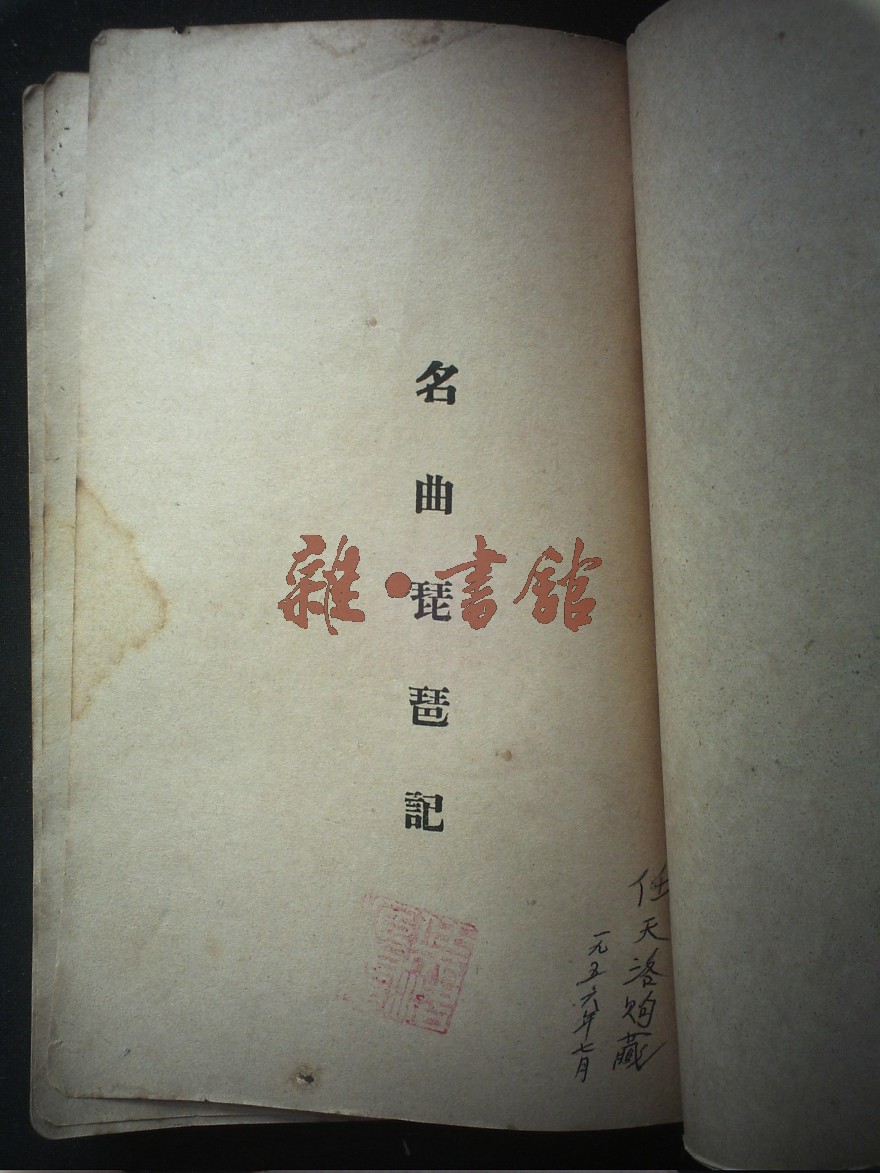 名曲琵琶記
雜·書館
任天洛购藏
一九五六年七月